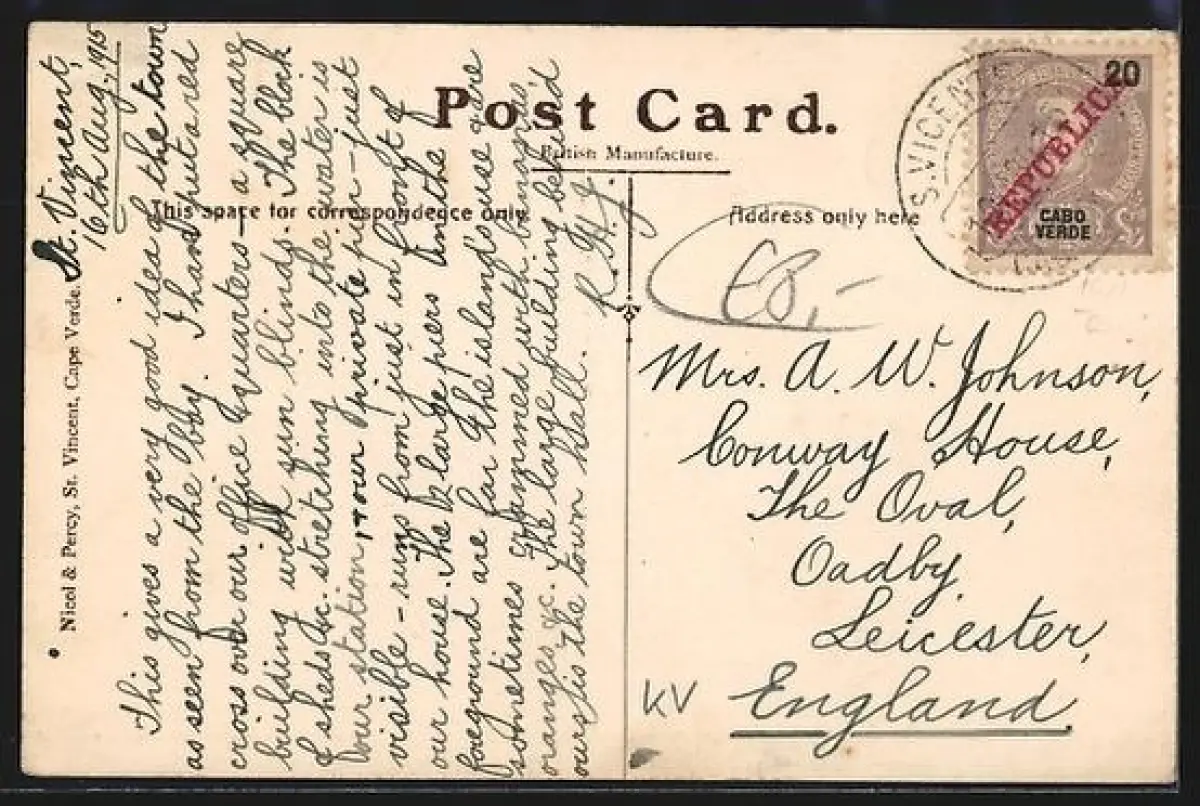 Post Card.
British Manufacture.
This space for correspondence only
Address only here
Nicol & Percy, St. Vincent, Cape Verde.
St. Vincent,
16th Aug., 1915
This gives a very good idea of the town
as seen from the bay. I have put a red
cross over our office & quarters - a square
building with sun blinds. The block
of sheds &c. stretching into the water is
our station, & our private pier - just
visible - runs from just in front of
our house. The 2 large piers in the
foreground are for the islands use & are
sometimes crammed with bananas
oranges &c. The large building behind
ours is the town hall.
R.H.J.
Mrs. A. W. Johnson,
Conway House,
The Oval,
Oadby,
Leicester,
England.
S. VICENTE
20
REPUBLICA
CABO
VERDE
€8,-
KV